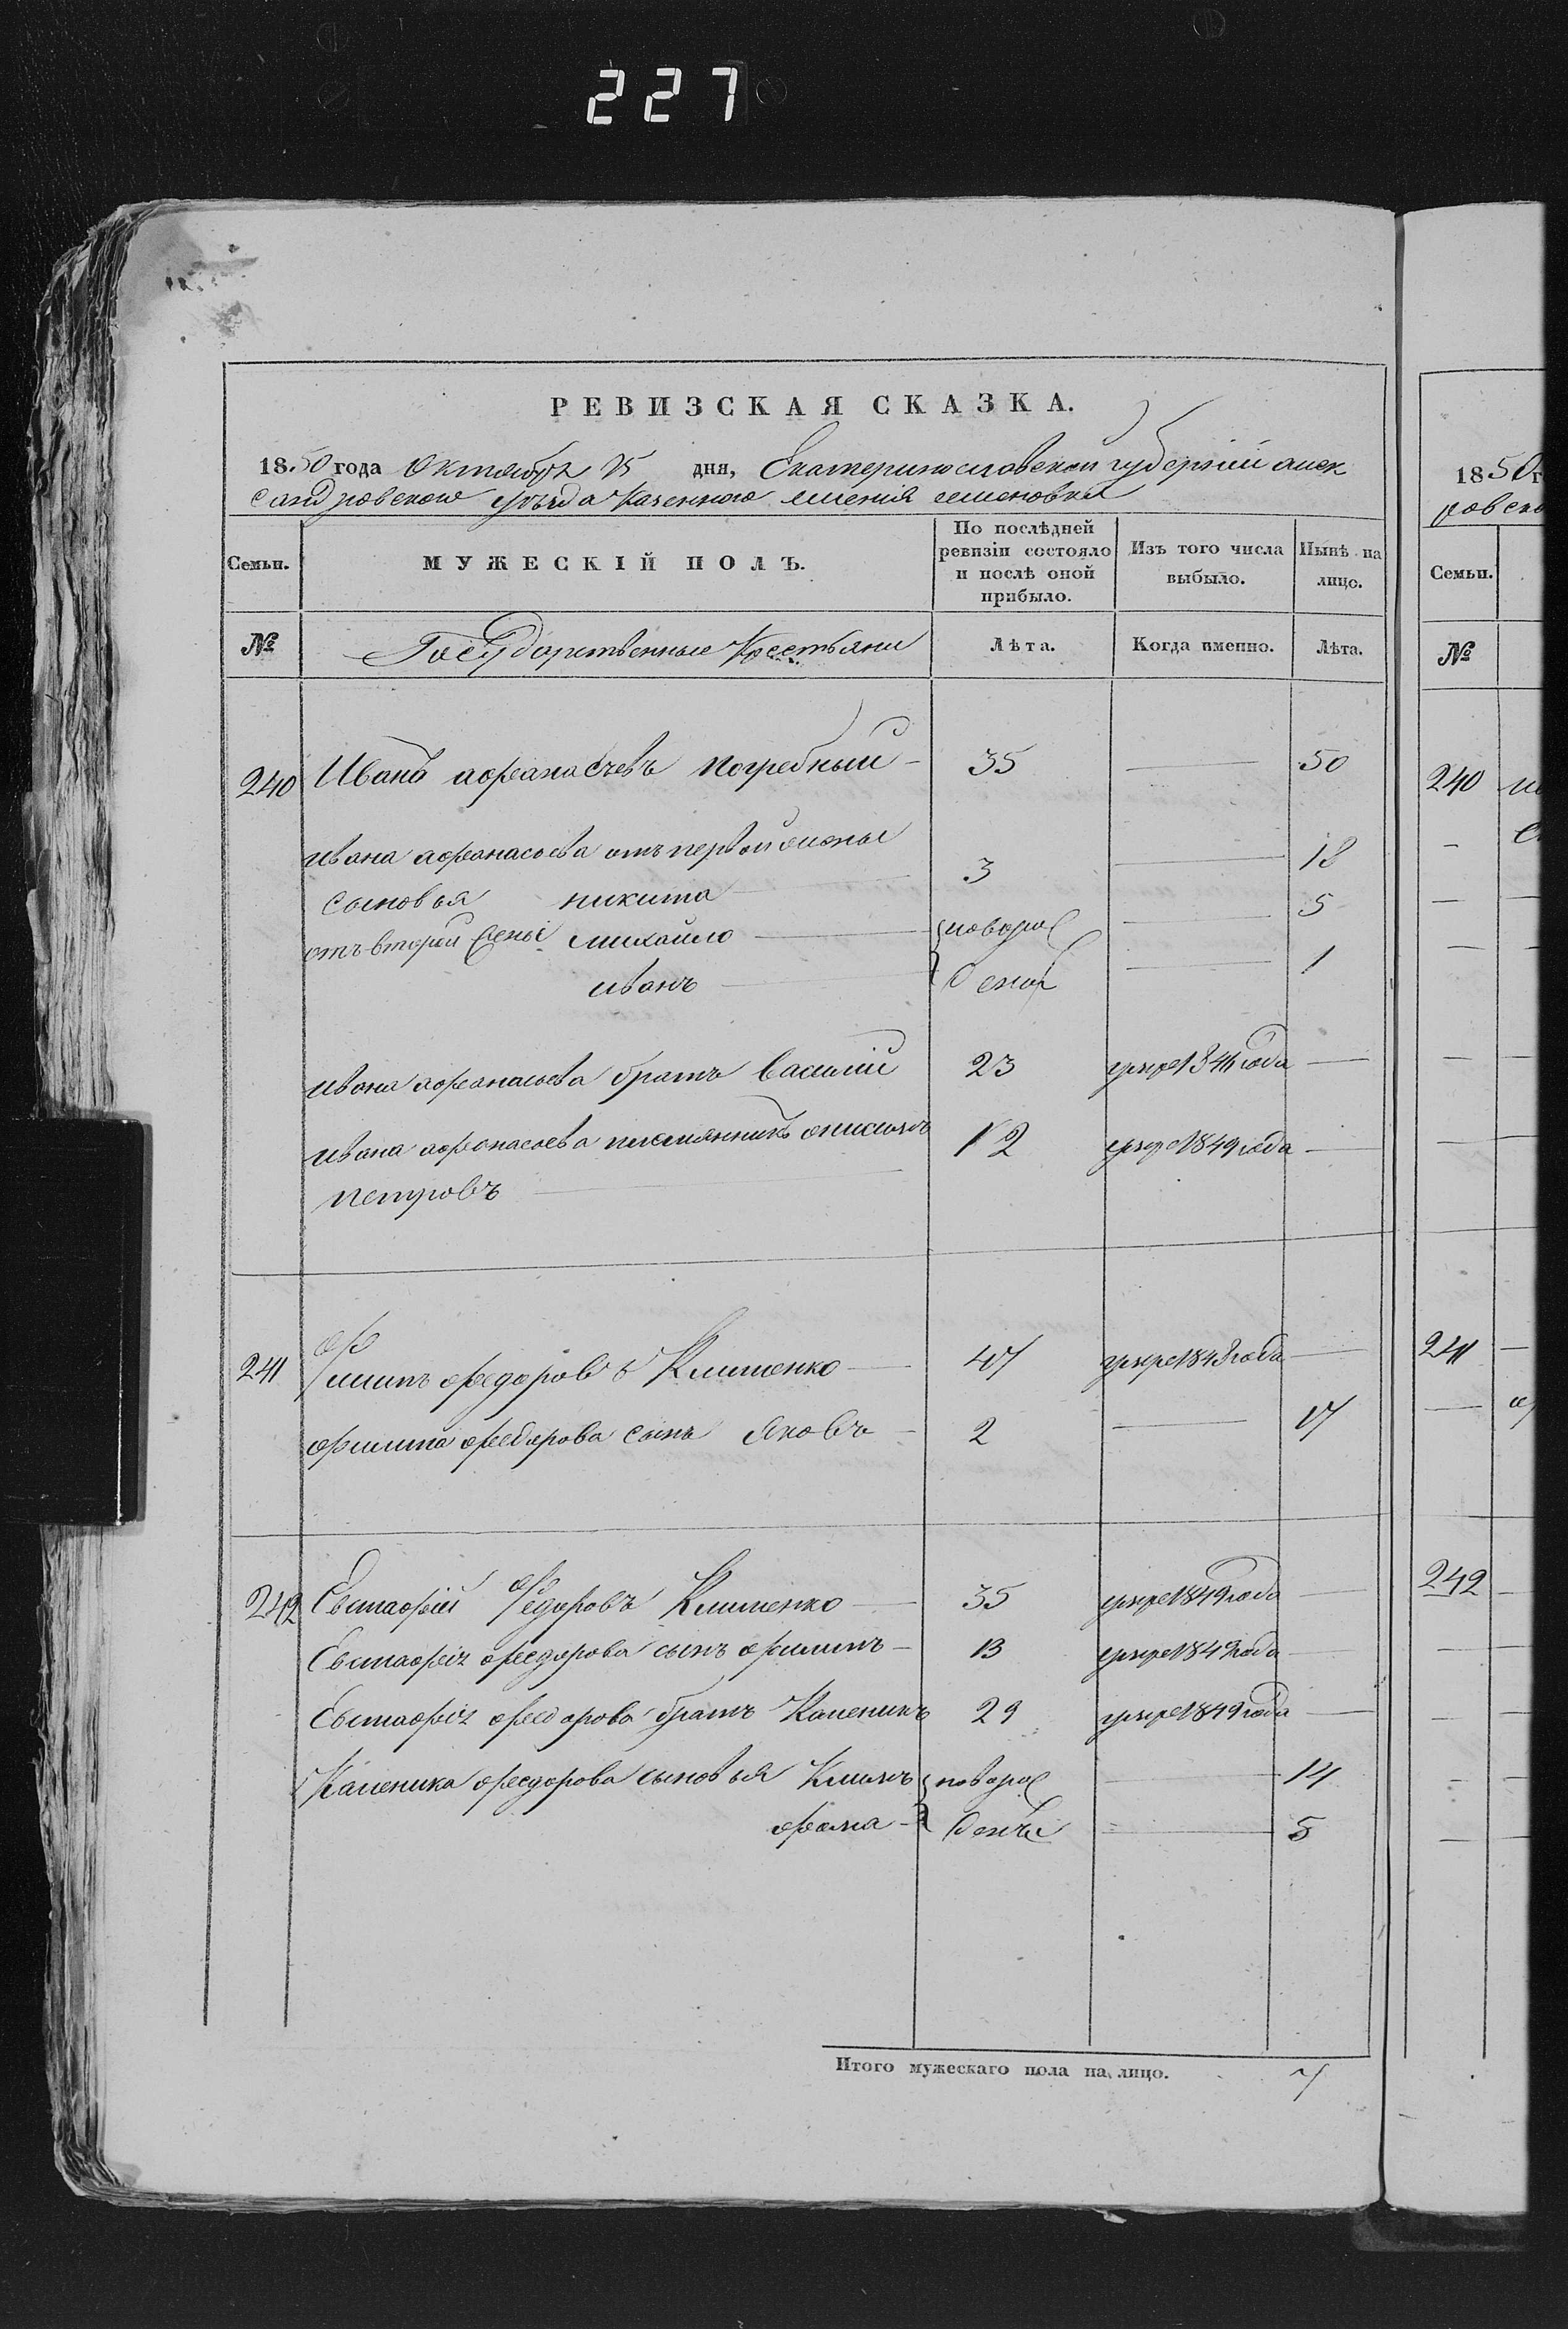 227
РЕВИЗСКАЯ СКАЗКА.
1850 года Октября 25 дня, Екатеринославской губернии алек
сандровского уъзда Казенного имения семеновки
Семьи. МУЖЕСКІЙ ПОЛЪ. По послѣдней ревизіи состояло и послѣ оной прибыло. Изъ того числа выбыло. Нынѣ на лицо.
№ Государственные Крестьяни Лѣта. Когда именно. Лѣта.
240 Иванъ афанасьевъ погребный 35 — 50
ивана афанасьева отъ первой жены
сыновья никита 3 — 18
отъ второй жены михайло новорож — 5
иванъ дены — 1
ивана афанасьева братъ Василий 23 умре 1846 года —
ивана афанасьева племянникъ онисимъ 12 умре 1849 года —
петровъ
241 филипъ федоровъ Клименко 47 умре 1848 года —
филипа федорова сынъ Яковъ 2 — 17
242 Евстафій Федоровъ Клименко 35 умре 1849 года —
Евстафія федорова сынъ филипъ 13 умре 1849 года —
Евстафія федорова братъ Каленикъ 29 умре 1849 года —
Каленика федорова сыновья Климъ новорож — 14
фома дены — 5
Итого мужескаго пола на лицо. 7
1850 г
ровско
Семьи.
№
240
241
242